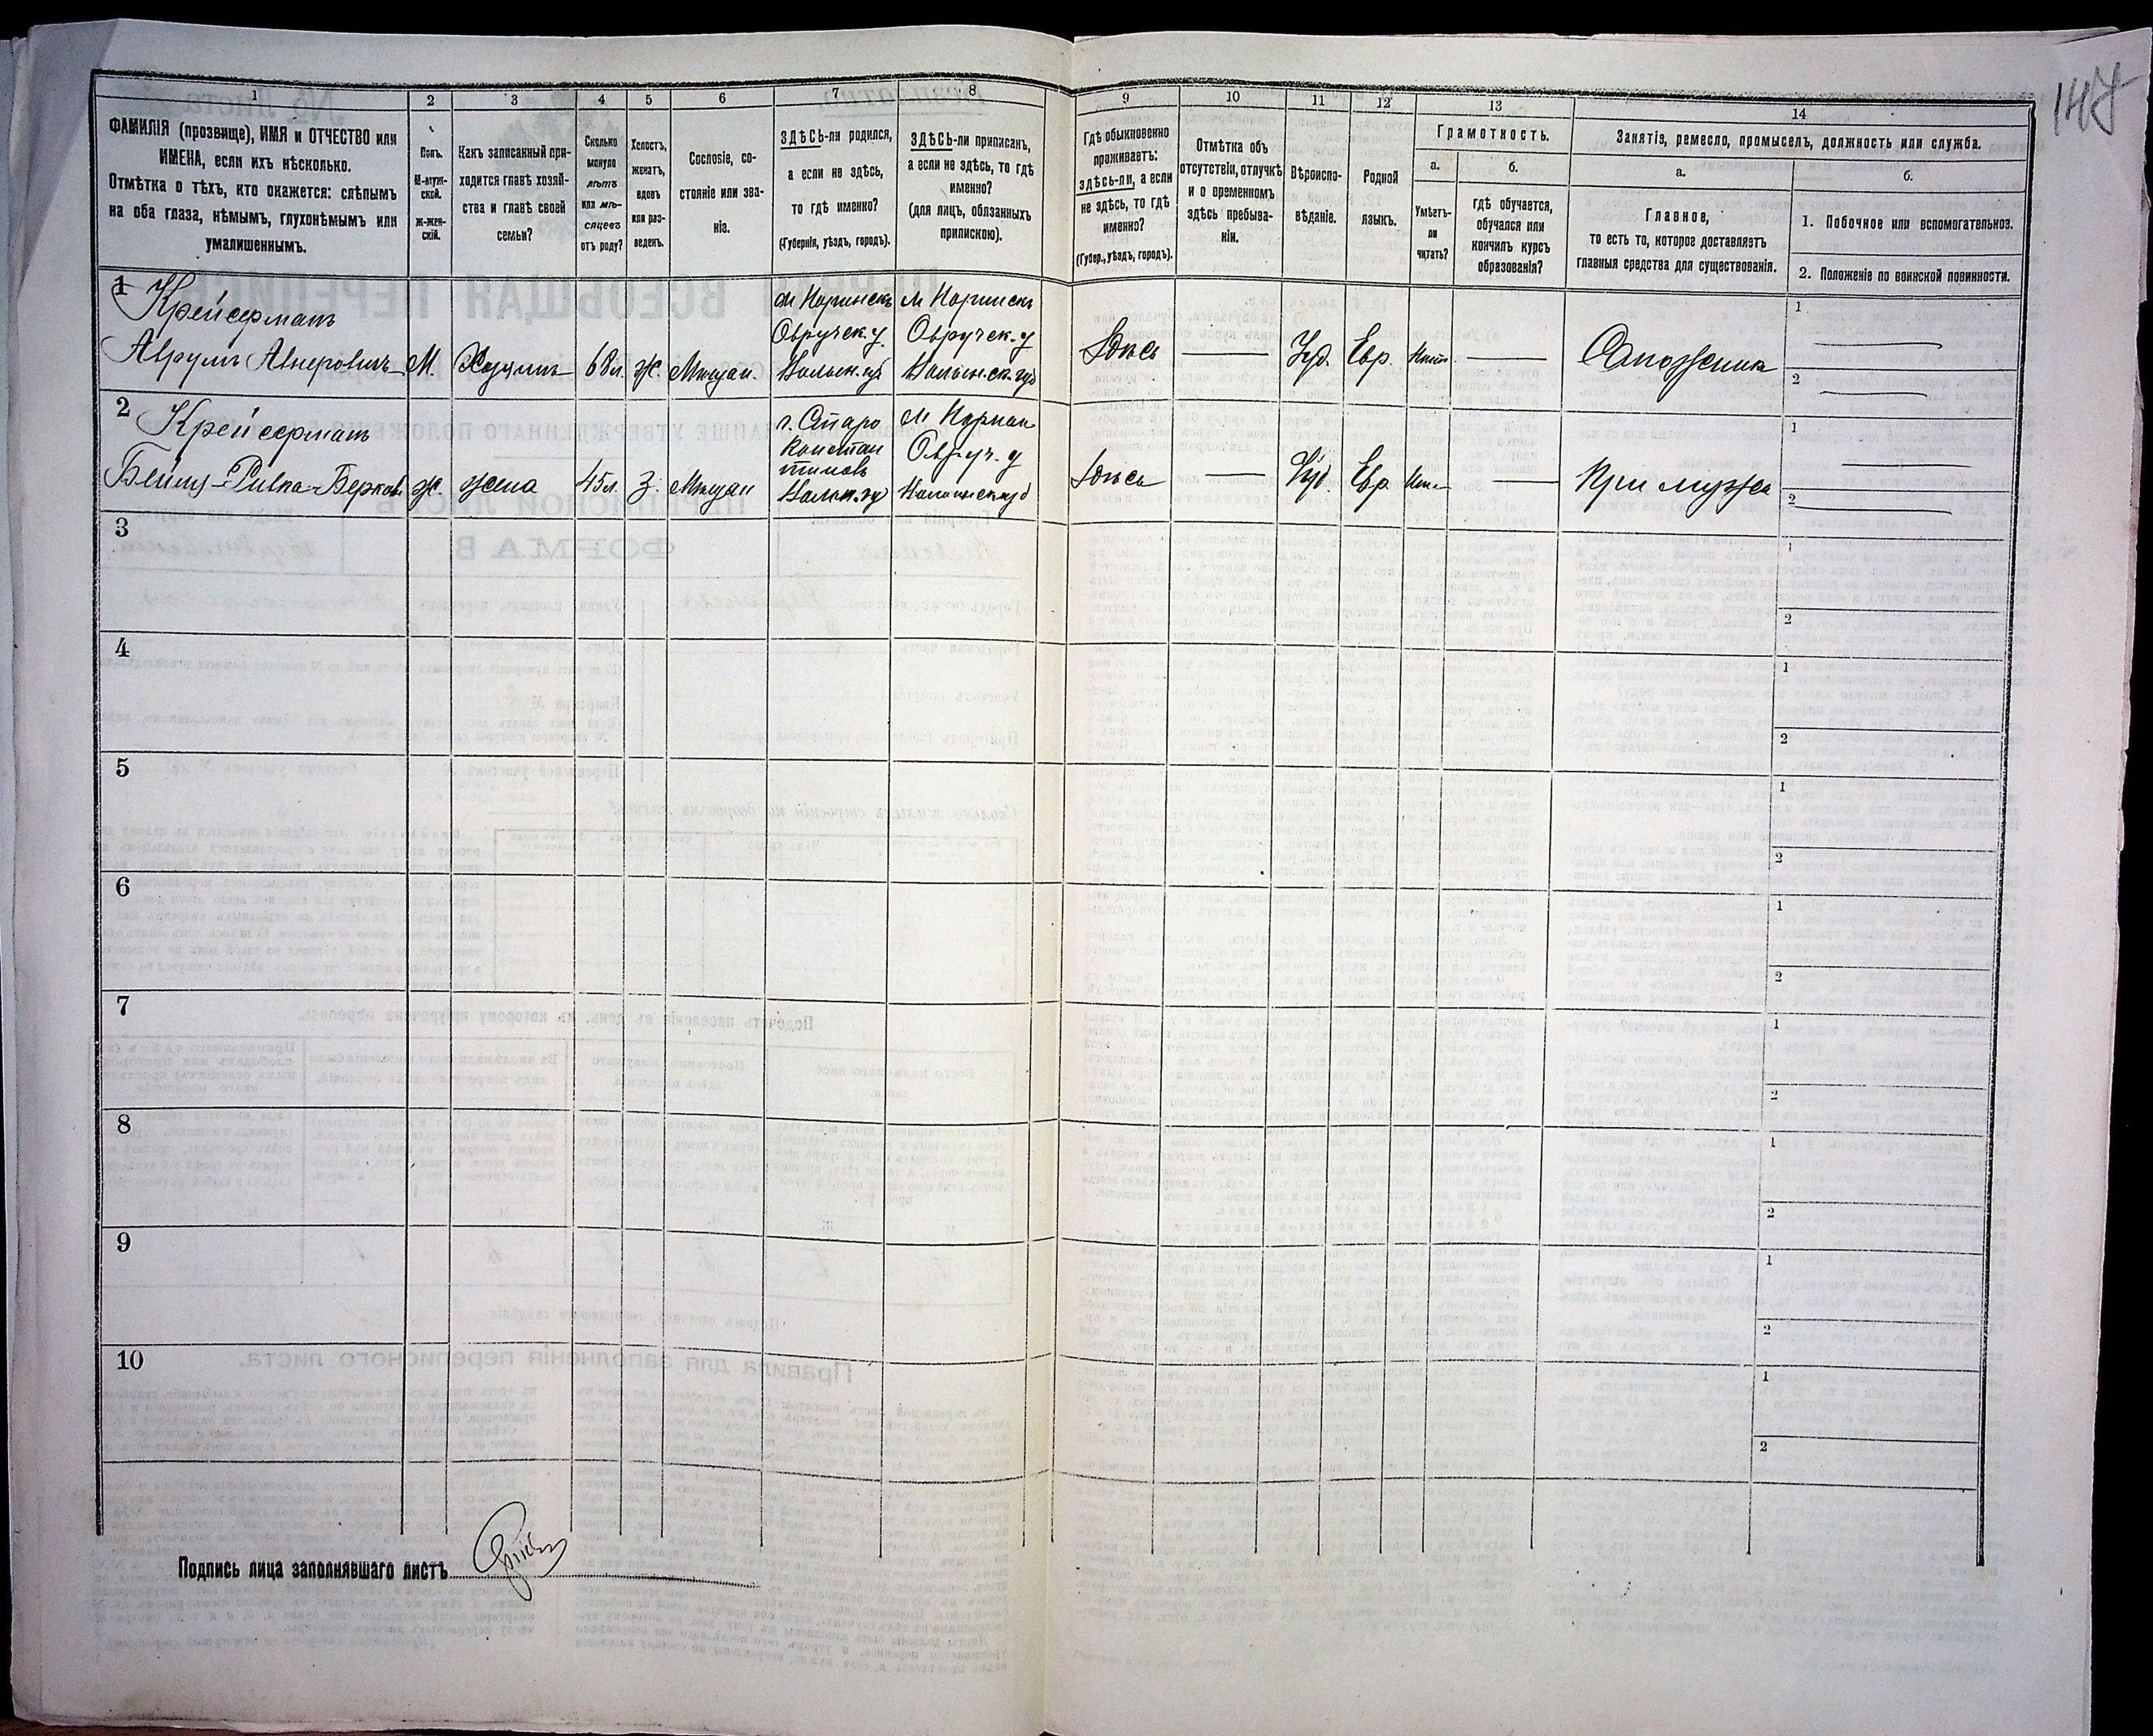 147
1 2 3 4 5 6 7 8 9 10 11 12 13 14
ФАМИЛІЯ (прозвище), ИМЯ и ОТЧЕСТВО или
ИМЕНА, если ихъ нѣсколько.
Отмѣтка о тѣхъ, кто окажется: слѣпымъ
на оба глаза, нѣмымъ, глухонѣмымъ или
умалишеннымъ.
Полъ.
М-муж-
ской.
Ж-жен-
скій.
Какъ записанный при-
ходится главѣ хозяй-
ства и главѣ своей
семьи?
Сколько
минуло
лѣтъ
или мѣ-
сяцевъ
отъ роду?
Холостъ,
женатъ,
вдовъ
или раз-
веденъ.
Сословіе, со-
стояніе или зва-
ніе.
ЗДѢСЬ-ли родился,
а если не здѣсь,
то гдѣ именно?
(Губернія, уѣздъ, городъ).
ЗДѢСЬ-ли приписанъ,
а если не здѣсь, то гдѣ
именно?
(для лицъ, обязанныхъ
припискою).
Гдѣ обыкновенно
проживаетъ:
здѣсь-ли, а если
не здѣсь, то гдѣ
именно?
(Губер., уѣздъ, городъ).
Отмѣтка объ
отсутствіи, отлучкѣ
и о временномъ
здѣсь пребыва-
ніи.
Вѣроиспо-
вѣданіе.
Родной
языкъ.
Грамотность.
а.
Умѣетъ-
ли
читать?
б.
гдѣ обучается,
обучался или
кончилъ курсъ
образованія?
Занятія, ремесло, промыселъ, должность или служба.
а.
Главное,
то есть то, которое доставляетъ
главныя средства для существованія.
б.
1. Побочное или вспомогательное.
2. Положеніе по воинской повинности.
1 Крейсерманъ
Аврумъ Авнеровичъ
М.
Хозяинъ
68 л.
Ж.
Мѣщан.
м Норинскъ
Овручск. у.
Волын. губ
м Норинскъ
Овручск. у
Волынск. губ
Здѣсь
Іуд.
Евр.
Нѣтъ
Сапожникъ
1
2
2 Крейсерманъ
Бейля-Ривка Берков.
Ж.
жена
45 л.
З.
Мѣщан
г. Старо
констан
тиновъ
Волын. гу
Овруч. у
Здѣсь
Іуд.
Евр.
При мужѣ
1
2
3
1
2
4
1
2
5
1
2
6
1
2
7
1
2
8
1
2
9
1
2
10
1
2
Подпись лица заполнявшаго листъ